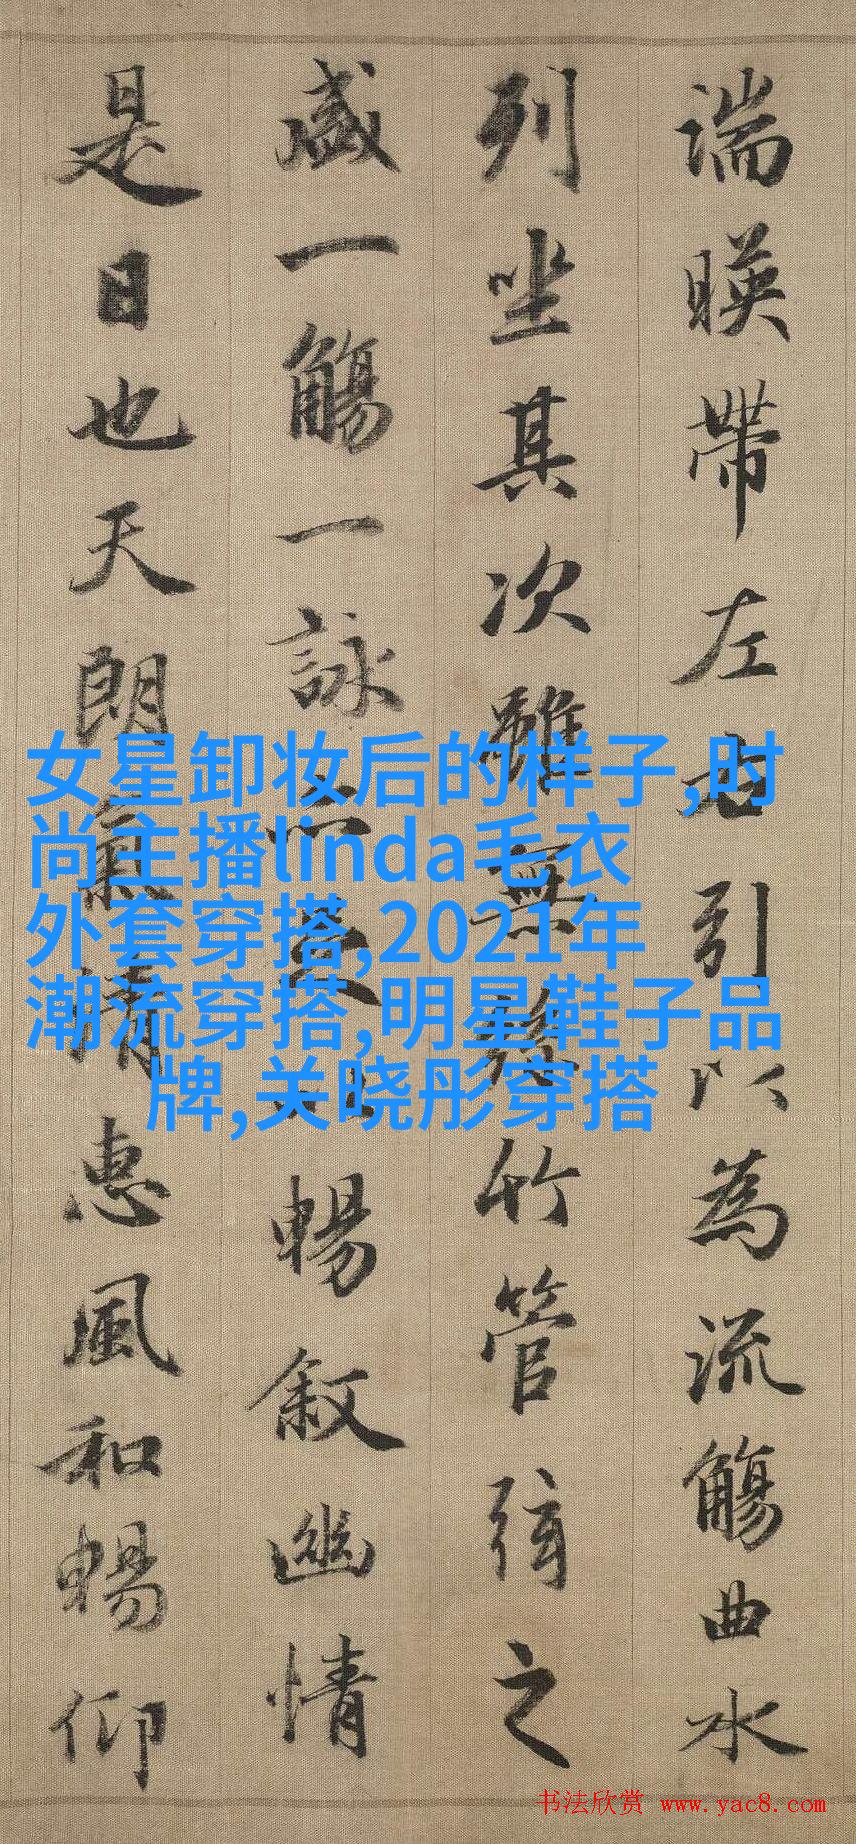 湍暎帶左右引以為流觴曲水
列坐其次雖無絲竹管弦之
盛一觴一詠亦足以暢叙幽情
是日也天朗氣清惠風和暢仰
女星卸妆后的样子,时
尚主播linda毛衣
外套穿搭,2021年
潮流穿搭,明星鞋子品
牌,关晓彤穿搭
书法欣赏 www.yac8.com